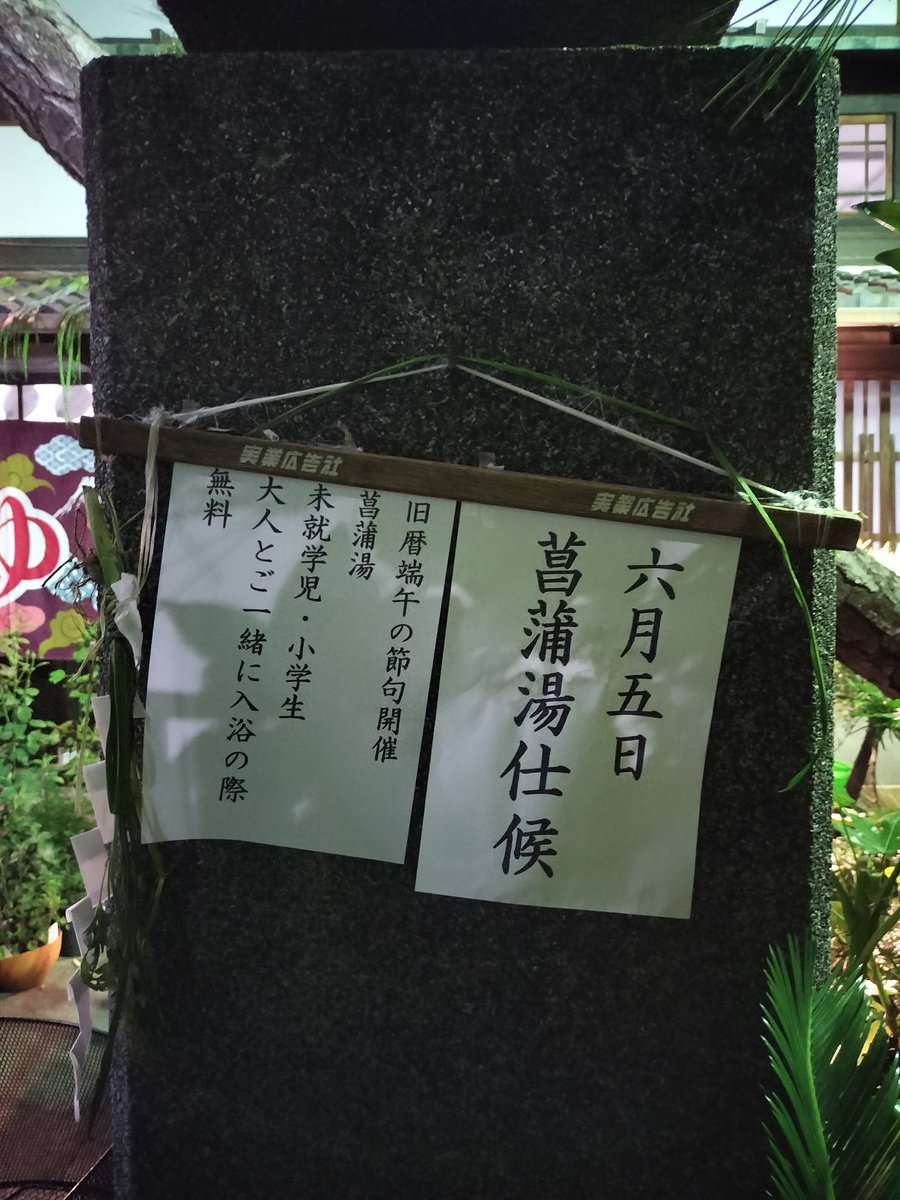 実業広告社
実業広告社
六月五日
菖蒲湯仕候
旧暦端午の節句開催
菖蒲湯
未就学児・小学生
大人とご一緒に入浴の際
無料
ゆ